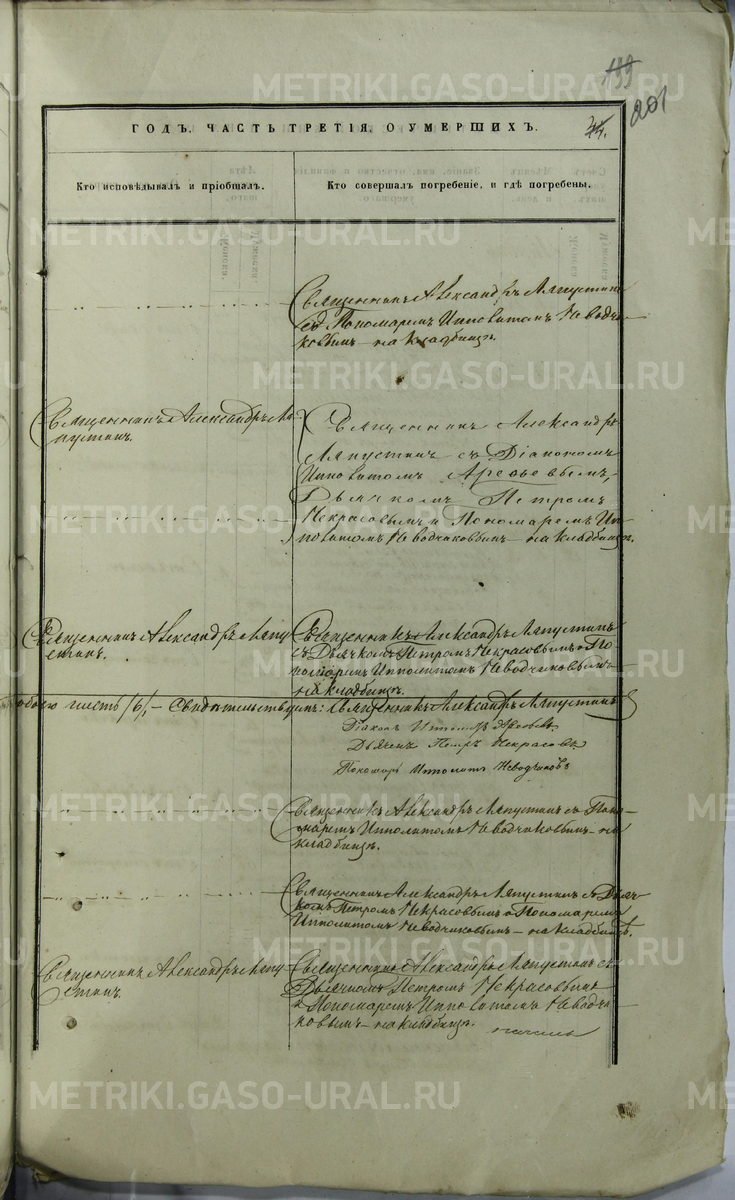 199
201
ГОДЪ, ЧАСТЬ ТРЕТІЯ, О УМЕРШИХЪ.
44.
Кто исповѣдывалъ и пріобщалъ.
Кто совершалъ погребеніе, и гдѣ погребены.
Священникъ Александръ Ляпустинъ
съ Пономаремъ Ипполитомъ Неводчи-
ковымъ – на кладбищѣ.
Священникъ Александръ Ля-
пустинъ.
Священникъ Александръ
Ляпустинъ съ Діакономъ
Ипполитомъ Арефьевымъ,
Дьячкомъ Петромъ
Некрасовымъ и Пономаремъ Ип-
политомъ Неводчиковымъ – на кладбищѣ.
Священникъ Александръ Ляпу-
стинъ.
Священникъ Александръ Ляпустинъ
съ Дьячкомъ Петромъ Некрасовымъ и По-
номаремъ Ипполитомъ Неводчиковымъ –
на кладбищѣ.
обоего шесть /6/, – Свидѣтельствуютъ: Священникъ Александръ Ляпустинъ
Діаконъ Ипполитъ Арефьевъ
Дьячекъ Петръ Некрасовъ
Пономарь Ипполитъ Неводчиковъ
Священникъ Александръ Ляпустинъ съ Поно-
маремъ Ипполитомъ Неводчиковымъ – на
кладбищѣ.
Священникъ Александръ Ляпустинъ съ Дьяч-
комъ Петромъ Некрасовымъ и Пономаремъ
Ипполитомъ Неводчиковымъ – на кладбищѣ.
Священникъ Александръ Ляпу-
стинъ.
Священникъ Александръ Ляпустинъ съ
Дьячкомъ Петромъ Некрасовымъ
и Пономаремъ Ипполитомъ Неводчи-
ковымъ – на кладбищѣ.
METRIKI.GASO-URAL.RU